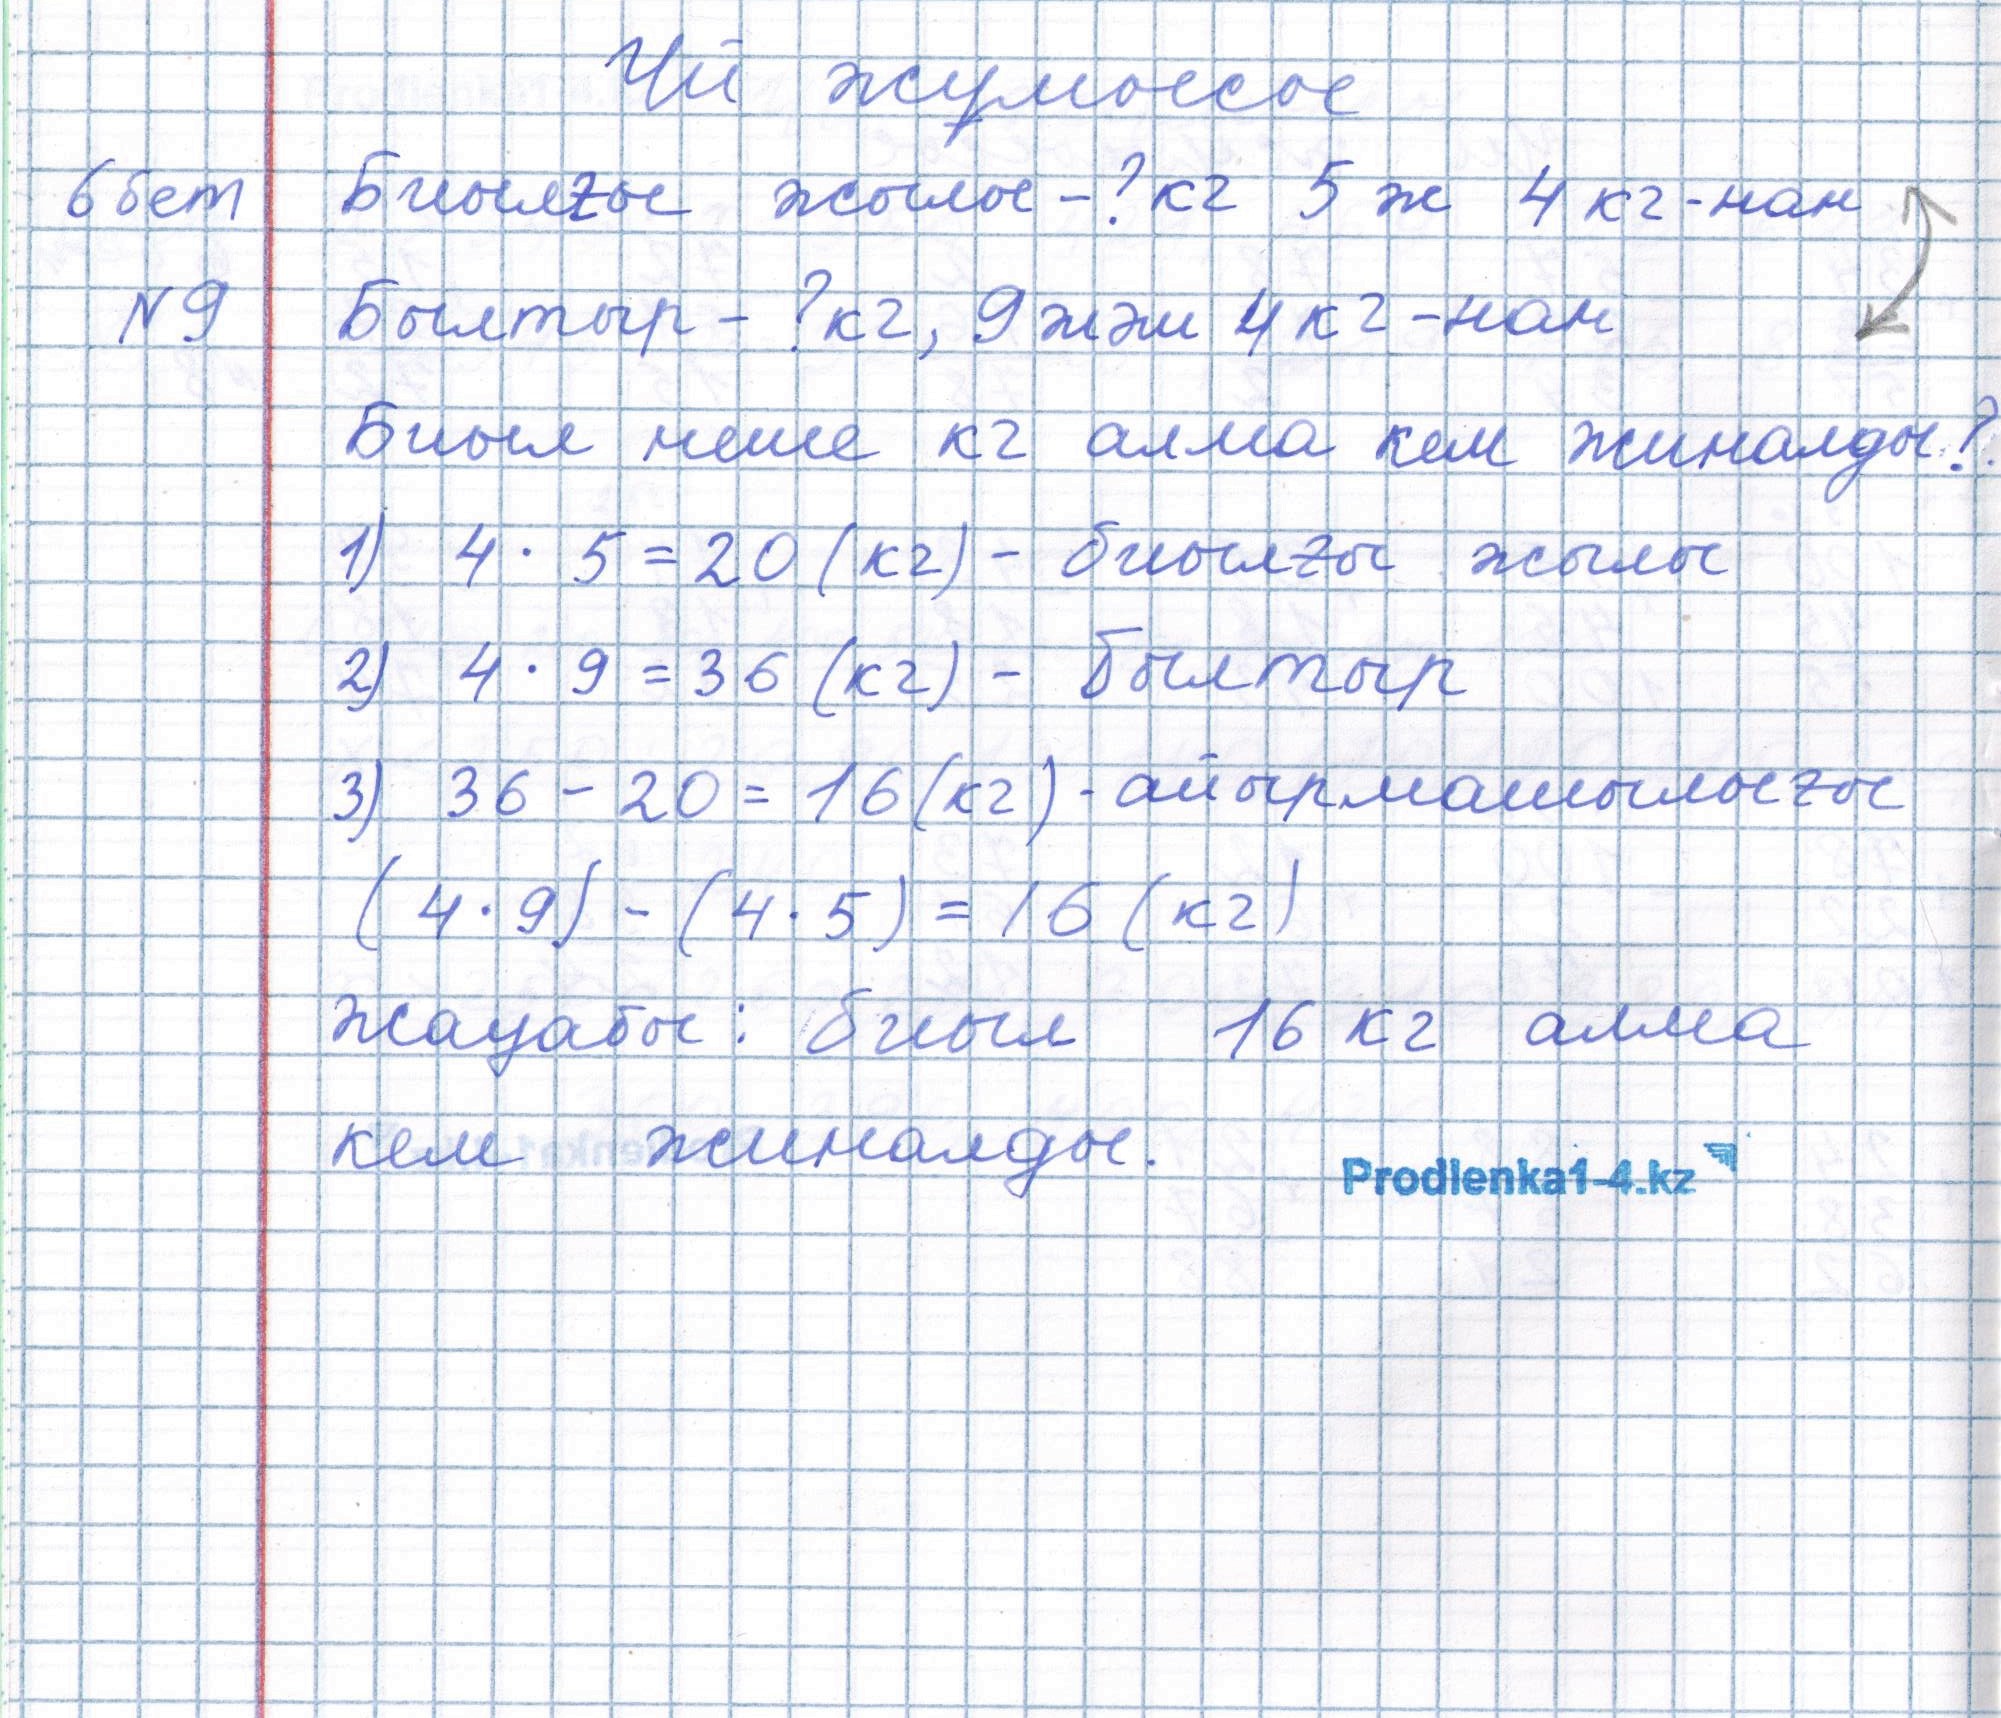 Үй жұмысы
6 бет Биылғы жылы - ? кг 5 ж 4 кг-нан
N9 Былтыр - ? кг, 9 жәш 4 кг-нан
Биыл неше кг алма кем жиналды?
1) 4 · 5 = 20 (кг) - биылғы жылы
2) 4 · 9 = 36 (кг) - былтыр
3) 36 - 20 = 16 (кг) - айырмашылығы
(4 · 9) - (4 · 5) = 16 (кг)
Жауабы: биыл 16 кг алма
кем жиналды.
Prodlenka1-4.kz